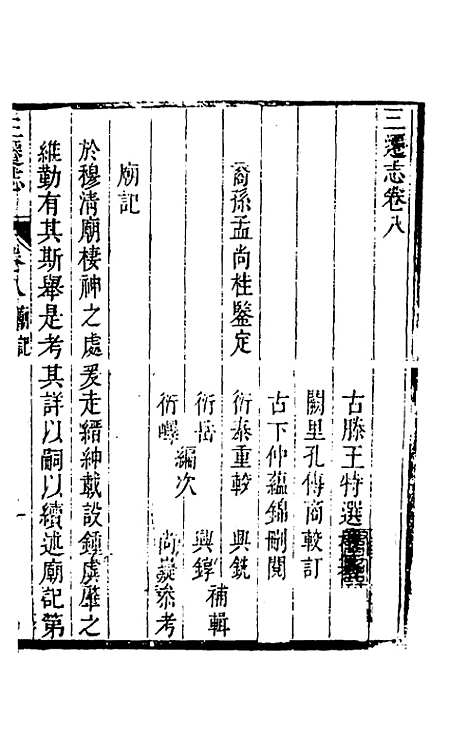 三遷志卷八
古滕王特選
闕里孔傳商較訂
古卞仲蘊錦刪閱
裔孫孟尚桂鑒定
衍泰重較　興銑
衍岳　興錞
編次　補輯
衍嶧　尚嶷參考
廟記
於穆清廟棲神之處爰走縉紳載設鍾虡歷之
維勤有其斯舉是考其詳以嗣以續述廟記第
三遷志　卷八　廟記